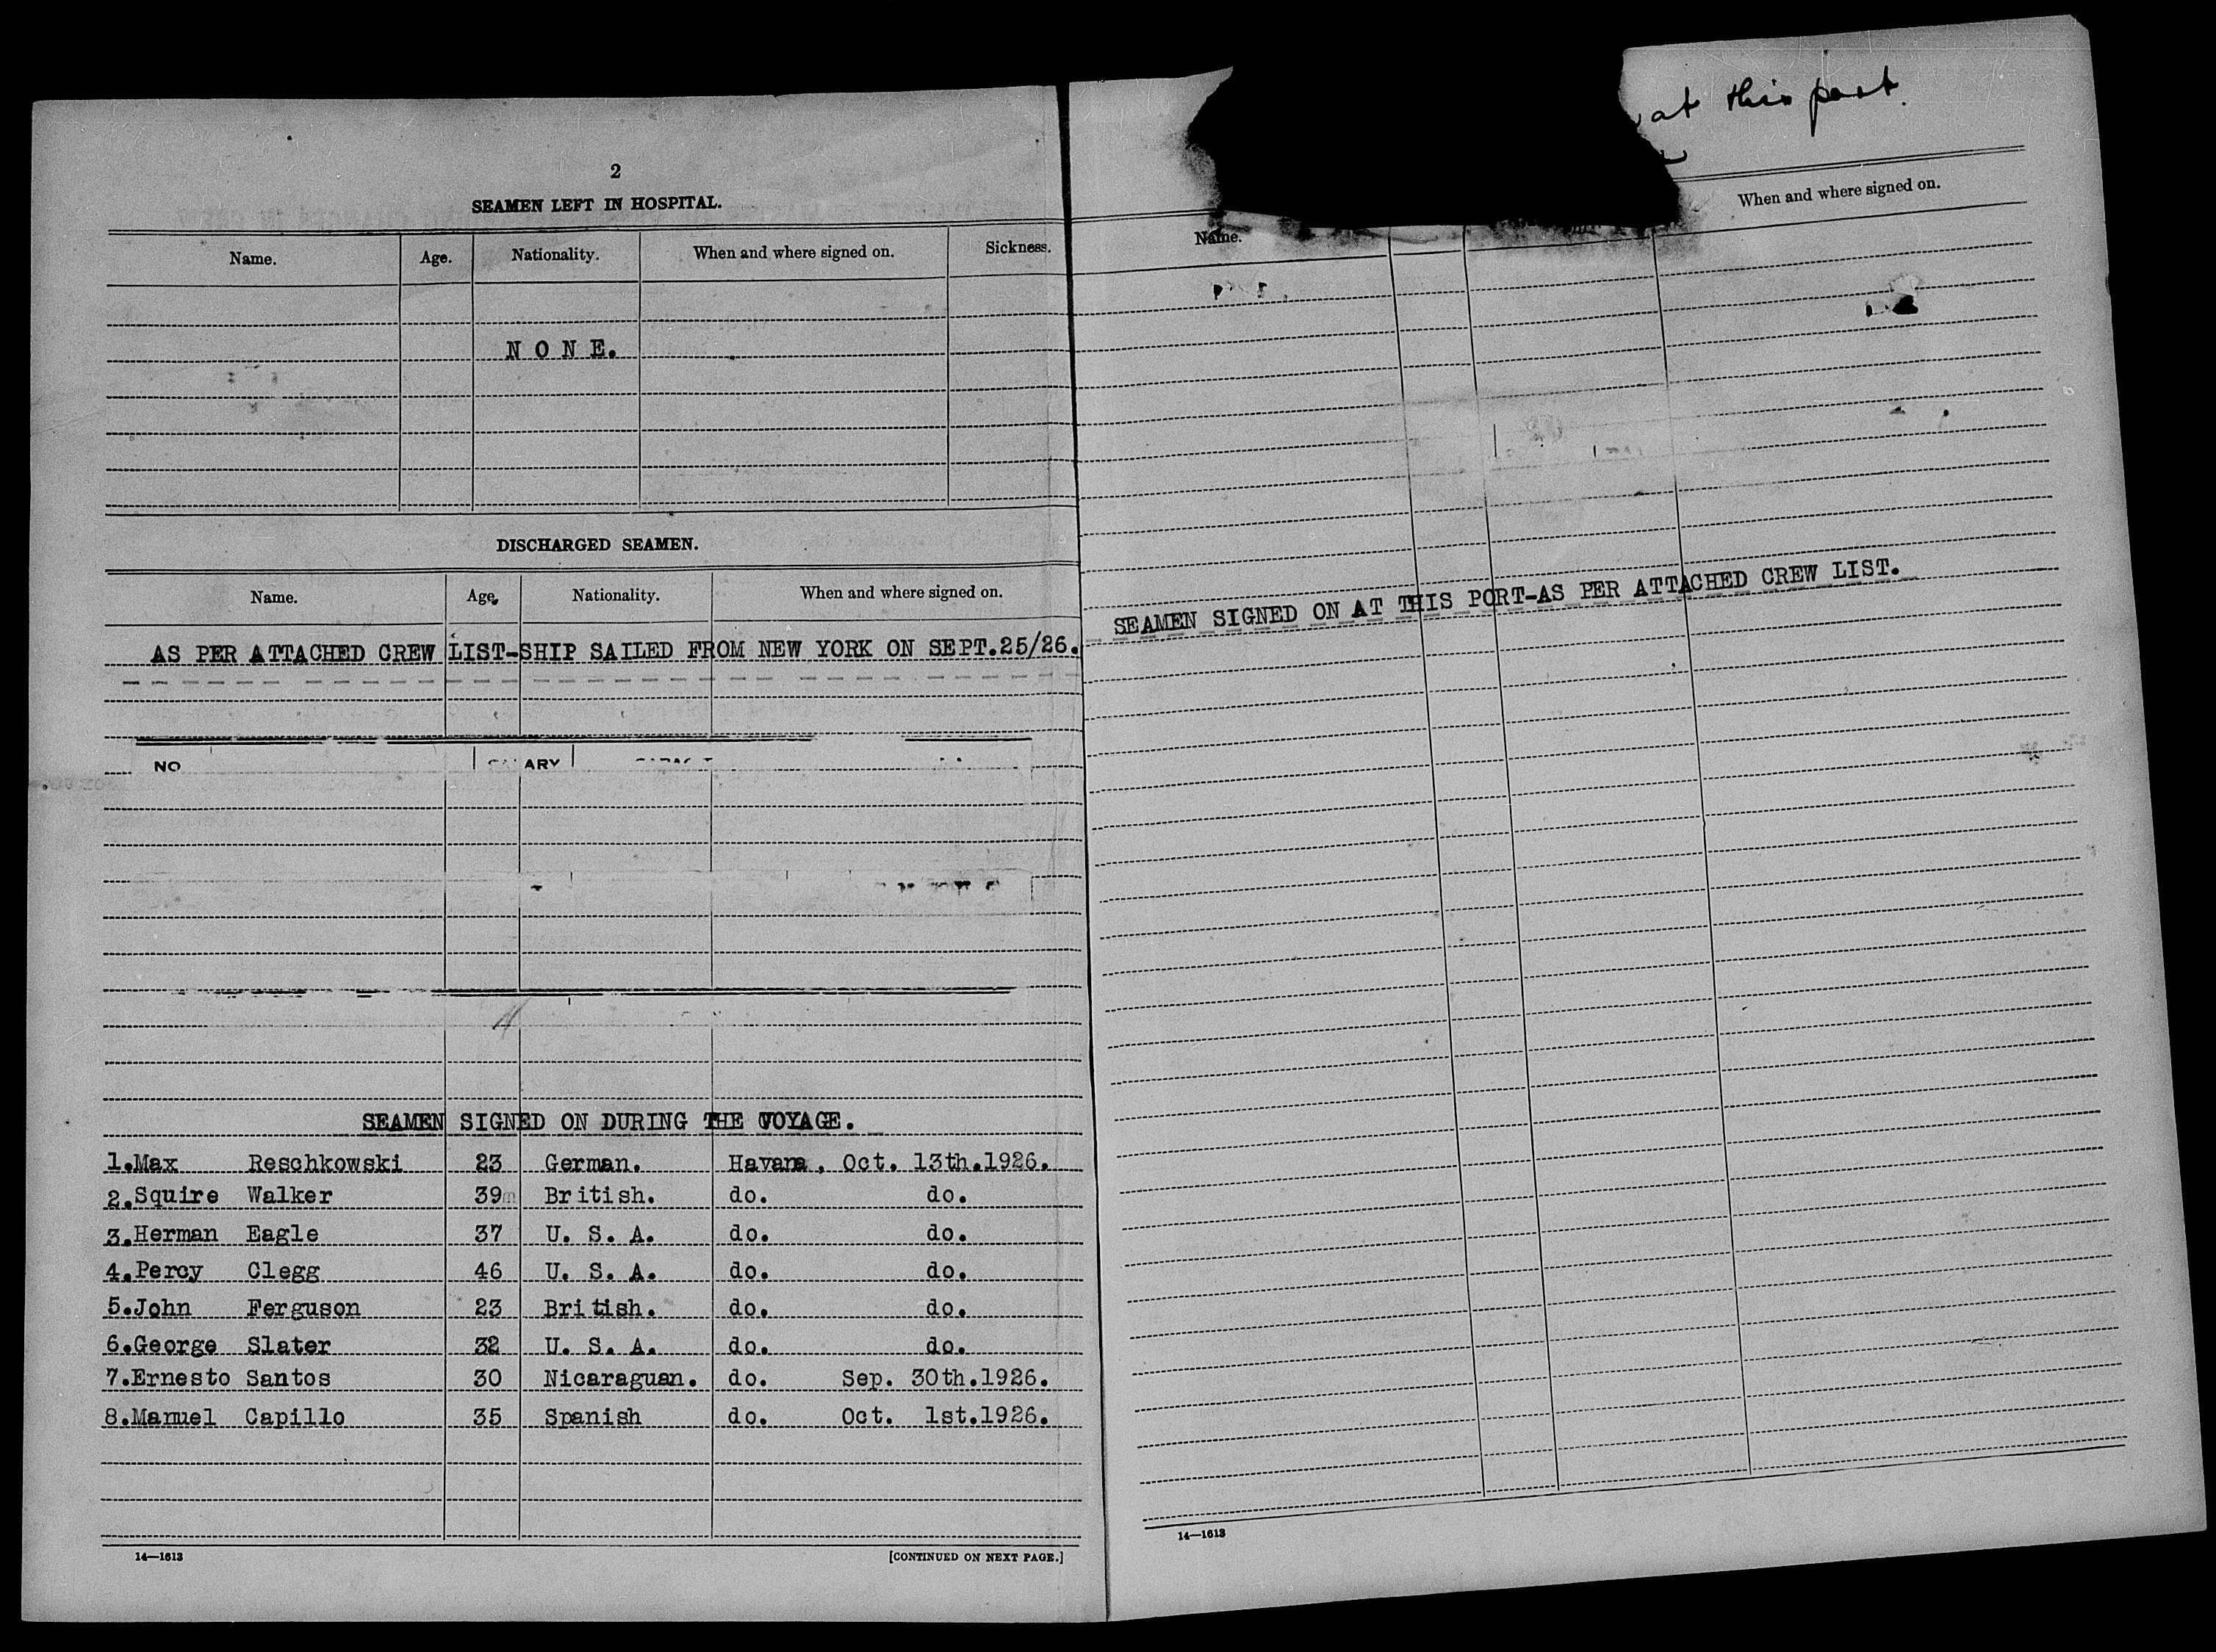 2
SEAMEN LEFT IN HOSPITAL.
Name. Age. Nationality. When and where signed on. Sickness.
N O N E.
DISCHARGED SEAMEN.
Name. Age. Nationality. When and where signed on.
AS PER ATTACHED CREW LIST-SHIP SAILED FROM NEW YORK ON SEPT.25/26.
NO ARY
SEAMEN SIGNED ON DURING THE VOYAGE.
1.Max Reschkowski 23 German. Havana, Oct. 13th.1926.
2.Squire Walker 39m British. do. do.
3.Herman Eagle 37 U. S. A. do. do.
4.Percy Clegg 46 U. S. A. do. do.
5.John Ferguson 23 British. do. do.
6.George Slater 32 U. S. A. do. do.
7.Ernesto Santos 30 Nicaraguan. do. Sep. 30th.1926.
8.Manuel Capillo 35 Spanish do. Oct. 1st.1926.
14—1613 [CONTINUED ON NEXT PAGE.]
at this port.
Name. When and where signed on.
SEAMEN SIGNED ON AT THIS PORT-AS PER ATTACHED CREW LIST.
14—1613